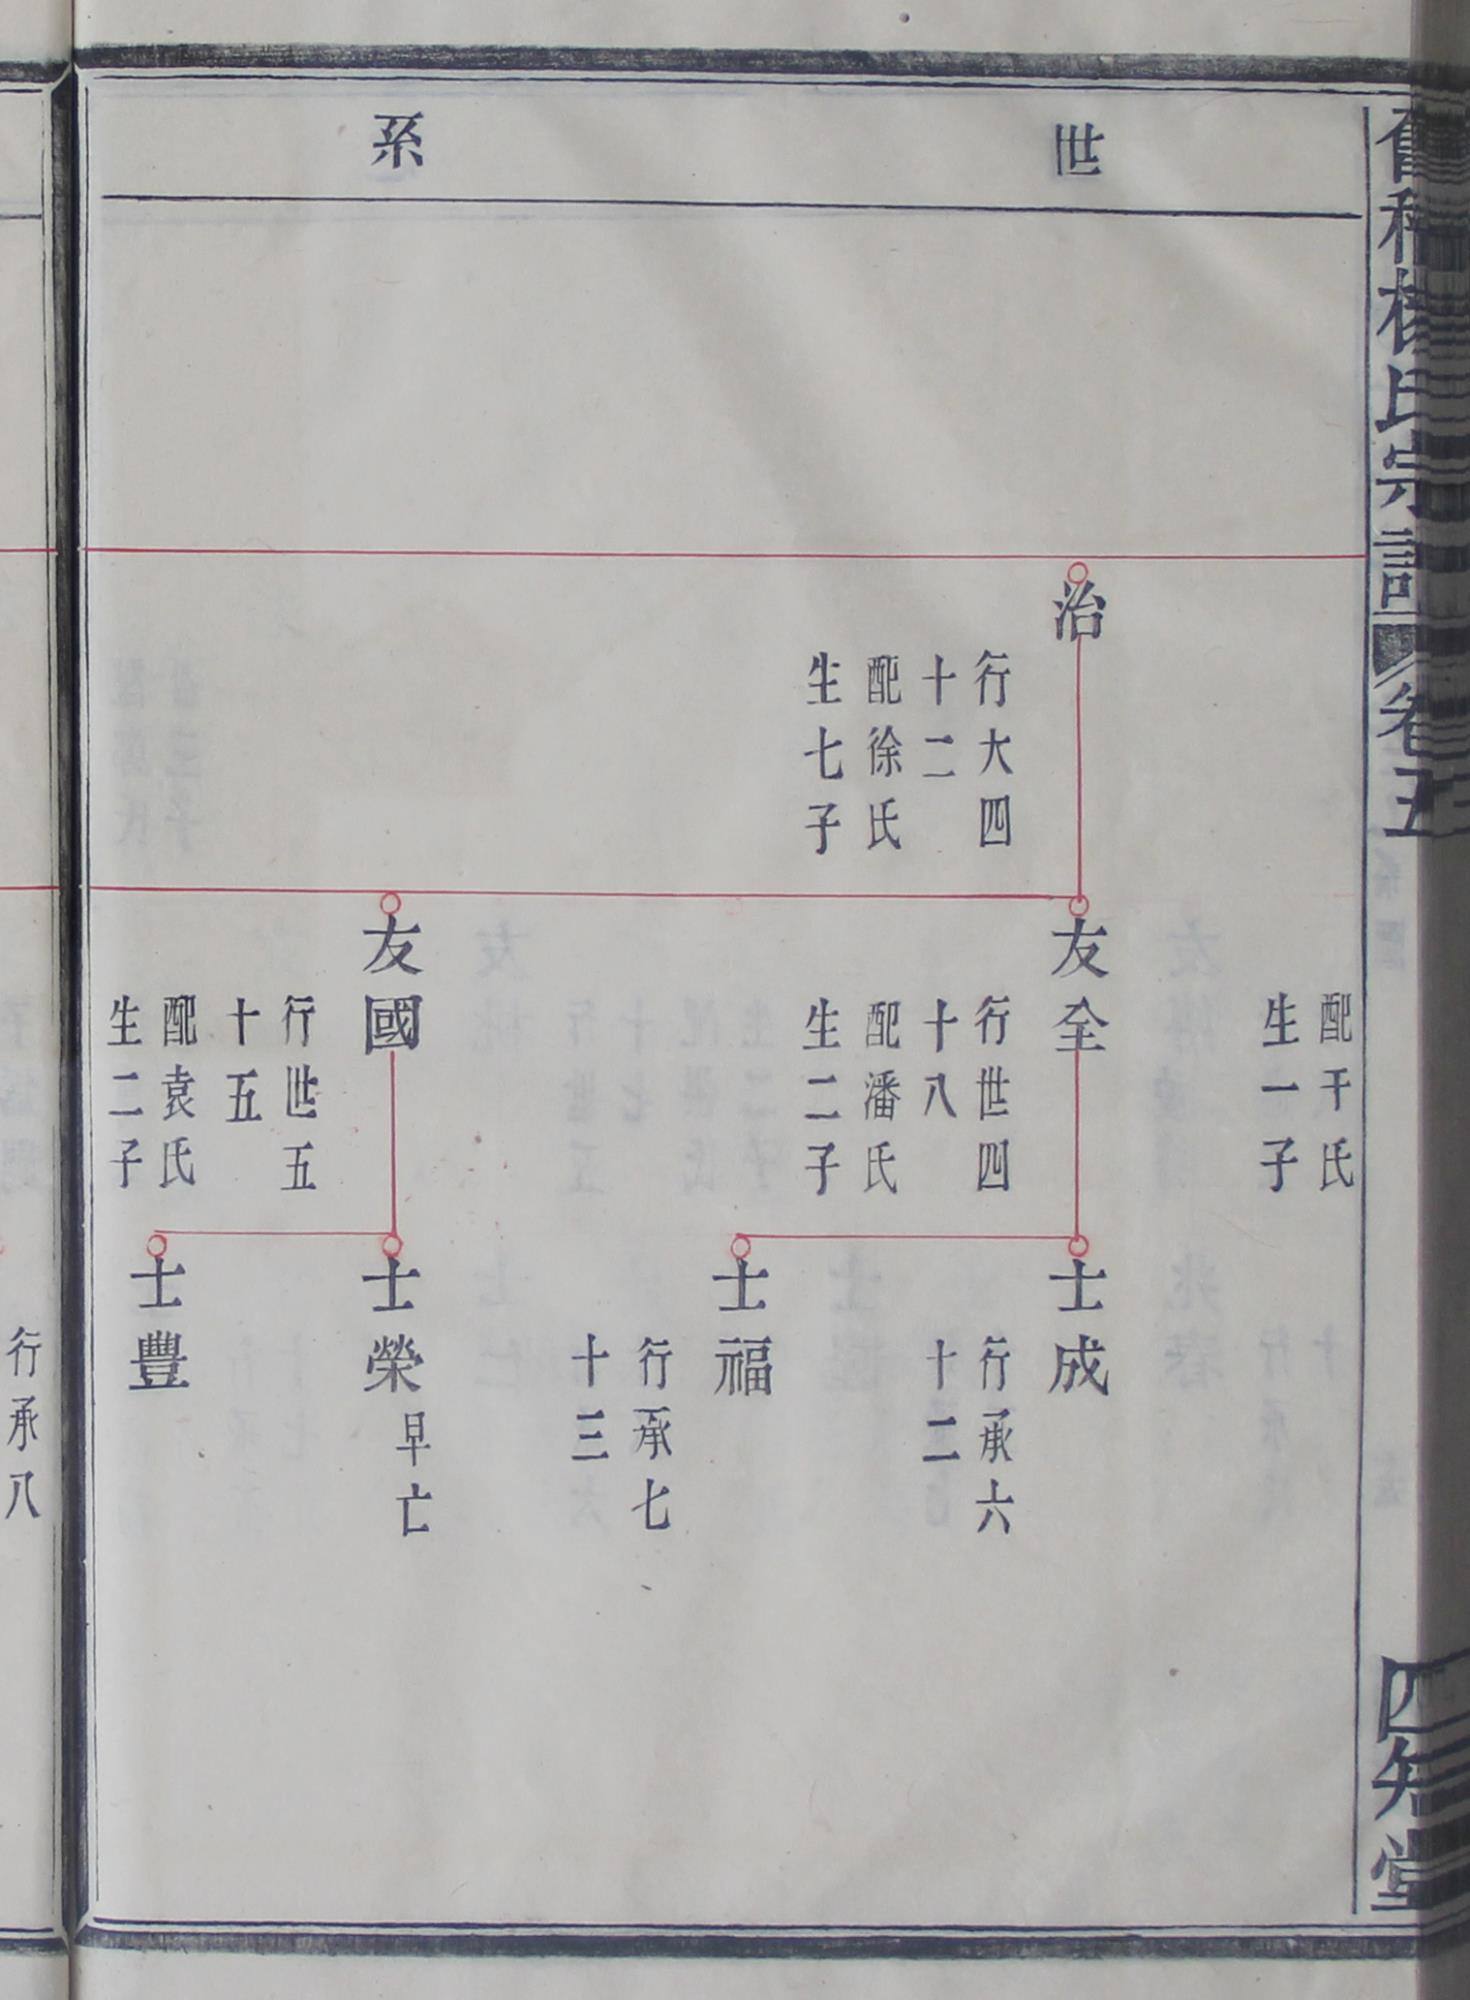 世系
配干氏
生一子
治
行大四
十二
配徐氏
生七子
友全
行世四
十八
配潘氏
生二子
友國
行世五
十五
配袁氏
生二子
士成
行承六
十二
士福
行承七
十三
士榮
早亡
士豊
行承八
氏宗譜
卷五
四知堂